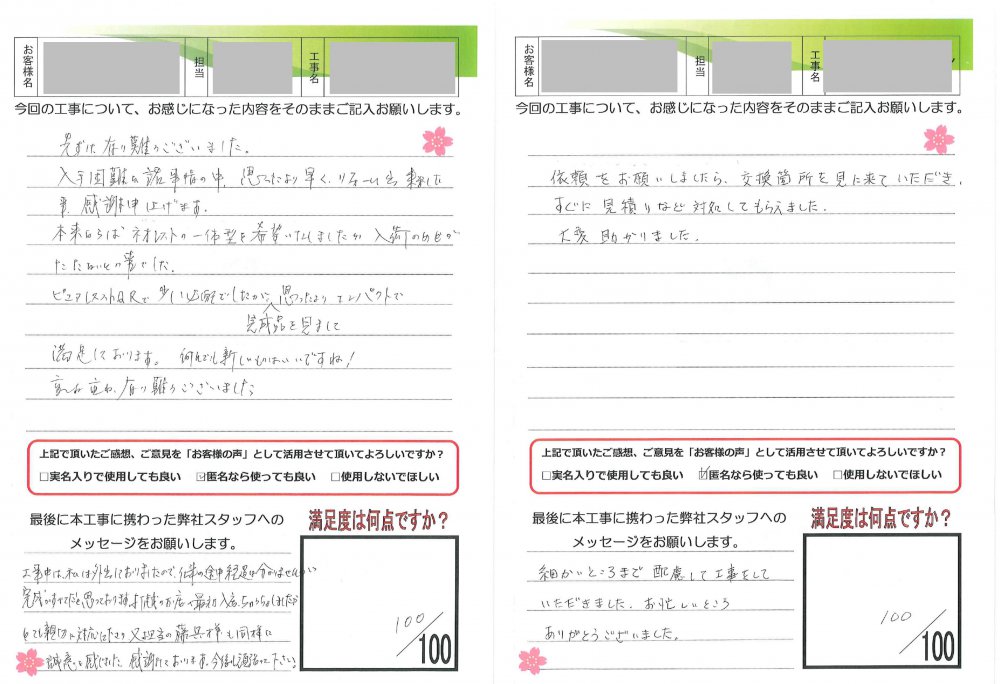 お客様名
担当
工事名
今回の工事について、お感じになった内容をそのままご記入お願いします。
先ずは有り難うございました。
入手困難な諸事情の中、思ったより早く、リフォーム出来ました
事、感謝申し上げます。
本来ならば ネオレストの一体型を希望いたしましたが 入荷のめどが
たたないとの事でした。
ピュアレストQRで 少し心配でしたが、思ったより コンパクトで
完成品を見まして
満足しております。 何んでも新しいものはいいですね!
重ね重ね、有り難うございました
上記で頂いたご感想、ご意見を「お客様の声」として活用させて頂いてよろしいですか?
□実名入りで使用しても良い ☑匿名なら使っても良い □使用しないでほしい
最後に本工事に携わった弊社スタッフへの
メッセージをお願いします。
工事中は、私は外出しておりましたので、仕事の途中経過は分かりませんが
完成がすべてだと思っております
とても親切に対応 下さり 又担当の 藤 様も同様に
誠意を感じました 感謝しております。今後も 下さい
満足度は何点ですか?
100/100
お客様名
担当
工事名
今回の工事について、お感じになった内容をそのままご記入お願いします。
依頼をお願いしましたら、交換箇所を見に来ていただき、
すぐに見積りなど対処してもらえました。
大変 助かりました。
上記で頂いたご感想、ご意見を「お客様の声」として活用させて頂いてよろしいですか?
□実名入りで使用しても良い ☑匿名なら使っても良い □使用しないでほしい
最後に本工事に携わった弊社スタッフへの
メッセージをお願いします。
細かいところまで 配慮して工事をして
いただきました。お忙しいところ
ありがとうございました。
満足度は何点ですか?
100/100